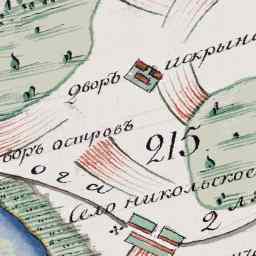 дворъ искрына
дворъ островъ
215
ога
Село никольское
2 л